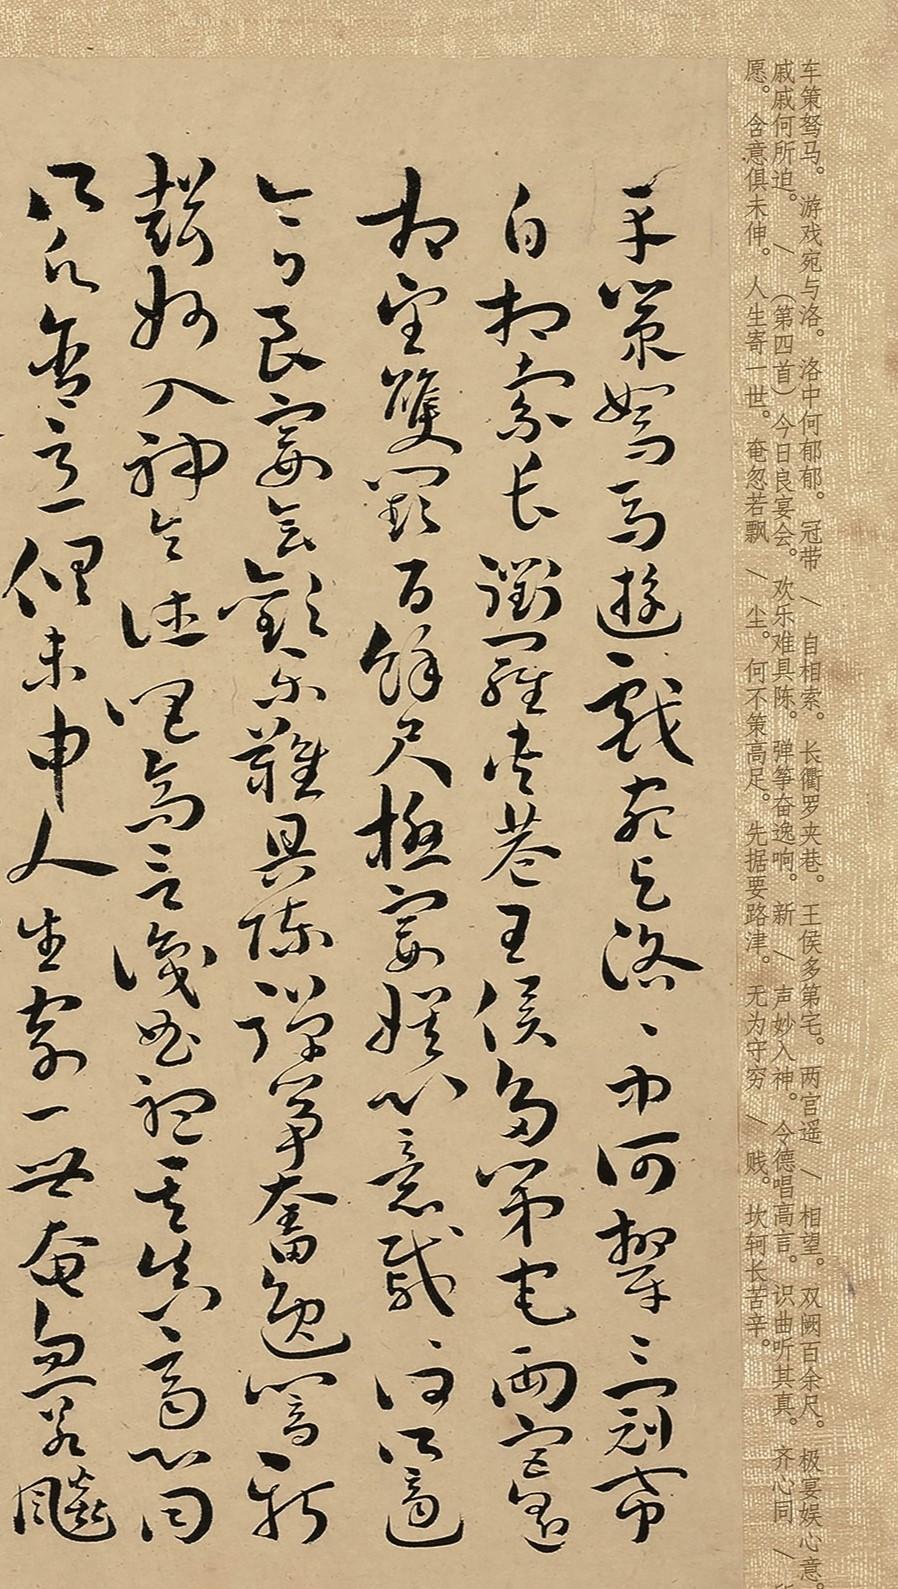 车策驽马。游戏宛与洛。洛中何郁郁。冠带 / 自相索。长衢罗夹巷。王侯多第宅。两宫遥 / 相望。双阙百余尺。极宴娱心意。
戚戚何所迫。 / (第四首)今日良宴会。欢乐难具陈。弹筝奋逸响。新 / 声妙入神。令德唱高言。识曲听其真。齐心同 /
愿。含意俱未伸。人生寄一世。奄忽若飘 / 尘。何不策高足。先据要路津。无为守穷 / 贱。坎轲长苦辛。
車策駑馬遊戲宛與洛〻中何鬱〻冠帶
自相索長衢羅夾巷王侯多第宅兩宮遙
相望雙闕百餘尺極宴娛心意戚〻何所迫
今日良宴會歡樂難具陳彈箏奮逸響新
聲妙入神令德唱高言識曲聽其真齊心同
所願含意俱未申人生寄一世奄忽若飆